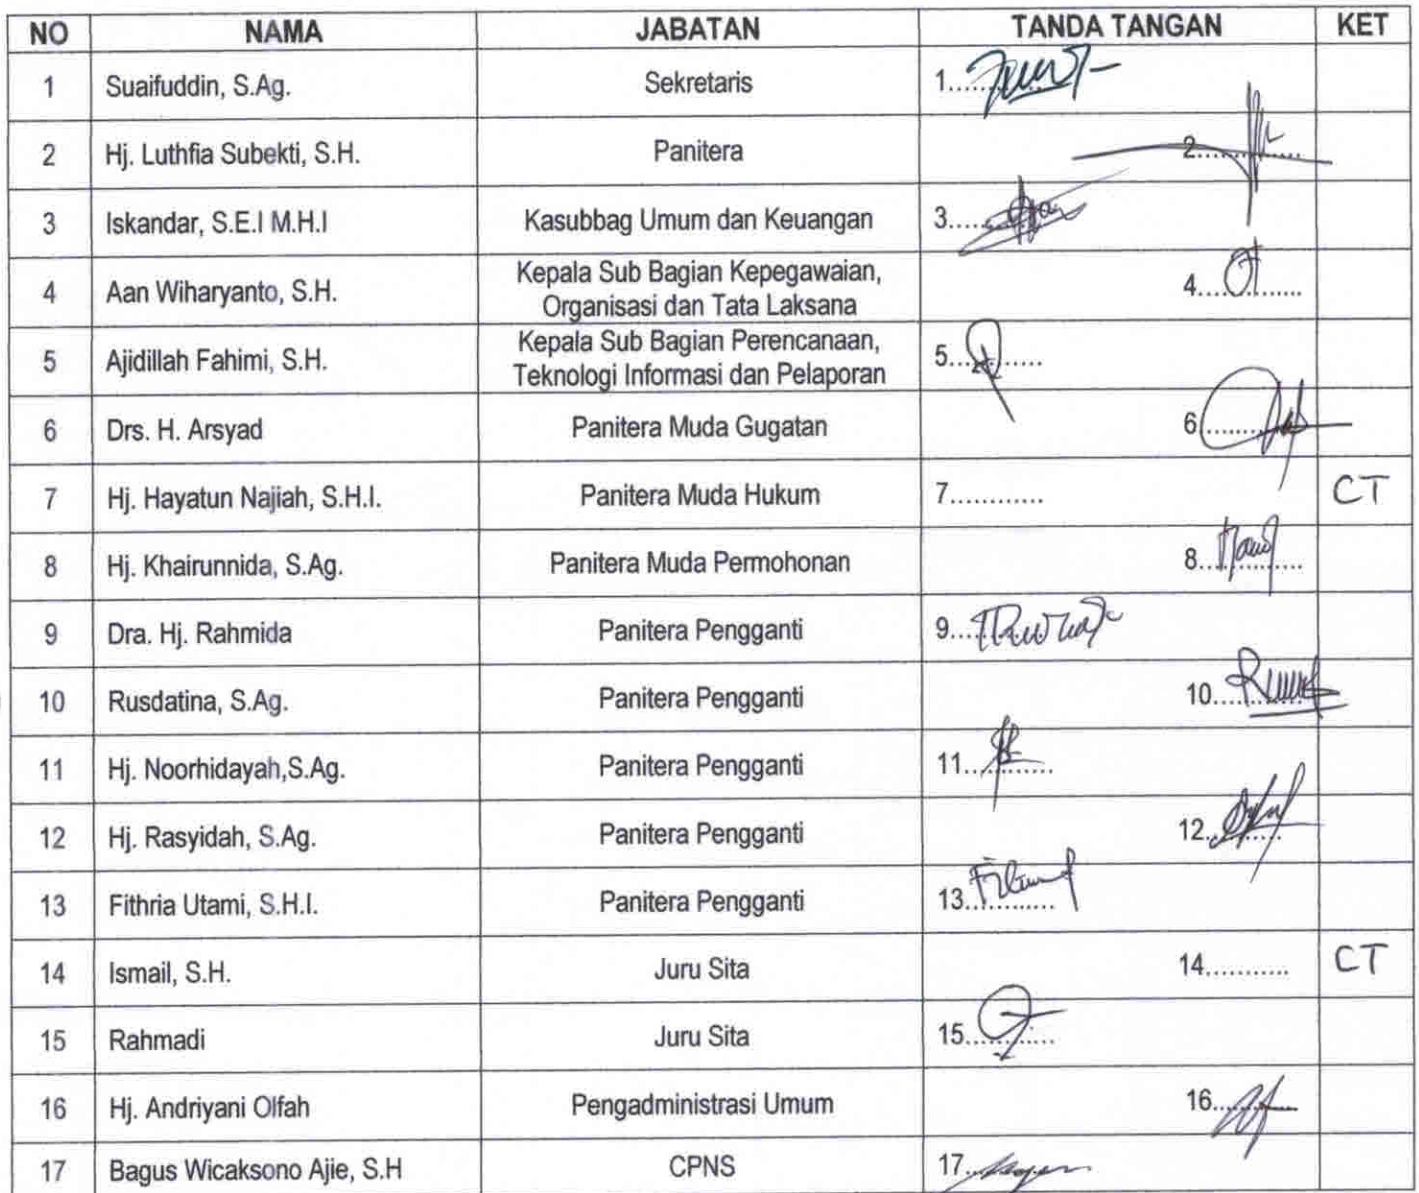 NO NAMA JABATAN TANDA TANGAN KET
1 Suaifuddin, S.Ag. Sekretaris 1............
2 Hj. Luthfia Subekti, S.H. Panitera 2............
3 Iskandar, S.E.I M.H.I Kasubbag Umum dan Keuangan 3............
4 Aan Wiharyanto, S.H. Kepala Sub Bagian Kepegawaian,
Organisasi dan Tata Laksana 4............
5 Ajidillah Fahimi, S.H. Kepala Sub Bagian Perencanaan,
Teknologi Informasi dan Pelaporan 5............
6 Drs. H. Arsyad Panitera Muda Gugatan 6............
7 Hj. Hayatun Najiah, S.H.I. Panitera Muda Hukum 7............ CT
8 Hj. Khairunnida, S.Ag. Panitera Muda Permohonan 8............
9 Dra. Hj. Rahmida Panitera Pengganti 9............
10 Rusdatina, S.Ag. Panitera Pengganti 10...........
11 Hj. Noorhidayah,S.Ag. Panitera Pengganti 11...........
12 Hj. Rasyidah, S.Ag. Panitera Pengganti 12...........
13 Fithria Utami, S.H.I. Panitera Pengganti 13...........
14 Ismail, S.H. Juru Sita 14........... CT
15 Rahmadi Juru Sita 15...........
16 Hj. Andriyani Olfah Pengadministrasi Umum 16...........
17 Bagus Wicaksono Ajie, S.H CPNS 17...........